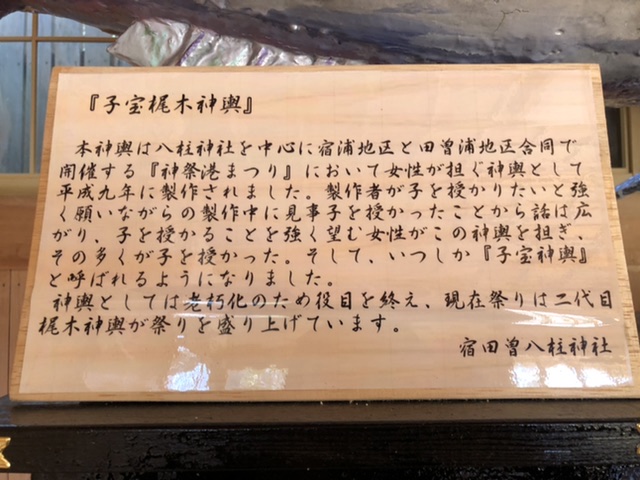 『子宝梶木神輿』
本神輿は八柱神社を中心に宿浦地区と田曽浦地区合同で
開催する『神祭港まつり』において女性が担ぐ神輿として
平成九年に製作されました。製作者が子を授かりたいと強
く願いながらの製作中に見事子を授かったことから話は広
がり、子を授かることを強く望む女性がこの神輿を担ぎ、
その多くが子を授かった。そして、いつしか『子宝神輿』
と呼ばれるようになりました。
神輿としては老朽化のため役目を終え、現在祭りは二代目
梶木神輿が祭りを盛り上げています。
宿田曽八柱神社